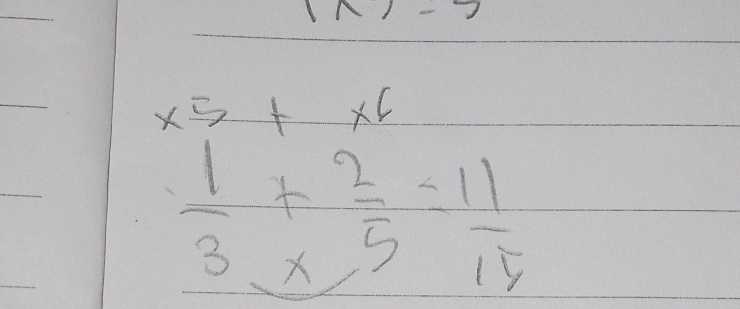 ×5 + ×6
1/3 + 2/5 = 11/15
×